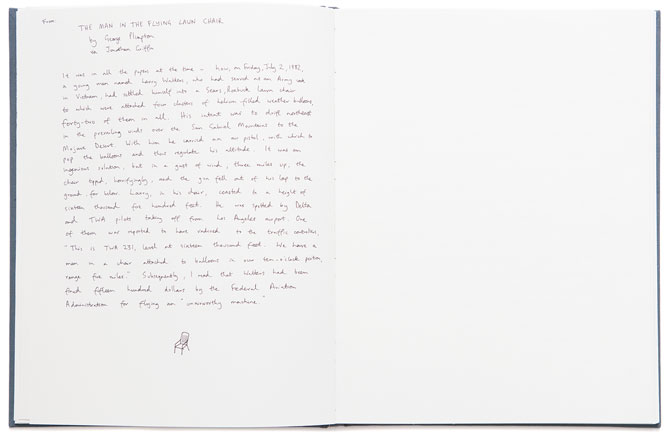 From: THE MAN IN THE FLYING LAWN CHAIR
by George Plimpton
via Jonathan Griffin
It was in all the papers at the time – how, on Friday, July 2, 1982,
a young man named Larry Walters, who had served as an Army cook
in Vietnam, had settled himself into a Sears, Roebuck lawn chair
to which were attached four clusters of helium-filled weather balloons,
forty-two of them in all. His intent was to drift northeast
in the prevailing winds over the San Gabriel Mountains to the
Mojave Desert. With him he carried an air pistol, with which to
pop the balloons and thus regulate his altitude. It was an
ingenious solution, but in a gust of wind, three miles up, the
chair tipped, horrifyingly, and the gun fell out of his lap to the
ground far below. Larry, in his chair, coasted to a height of
sixteen thousand five hundred feet. He was spotted by Delta
and TWA pilots taking off from Los Angeles airport. One
of them was reported to have radioed to the traffic controllers,
"This is TWA 231, level at sixteen thousand feet. We have a
man in a chair attached to balloons in our ten-o'clock position,
range five miles." Subsequently, I read that Walters had been
fined fifteen hundred dollars by the Federal Aviation
Administration for flying an "unairworthy machine."